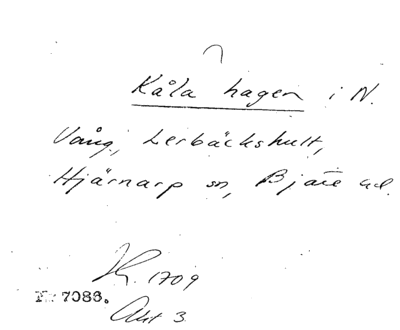 Kåla hagen i N.
Vång, Lerbäckshult,
Hjärnarp sn, Bjäre hd.
1709
Nr 7086.
Akt 3